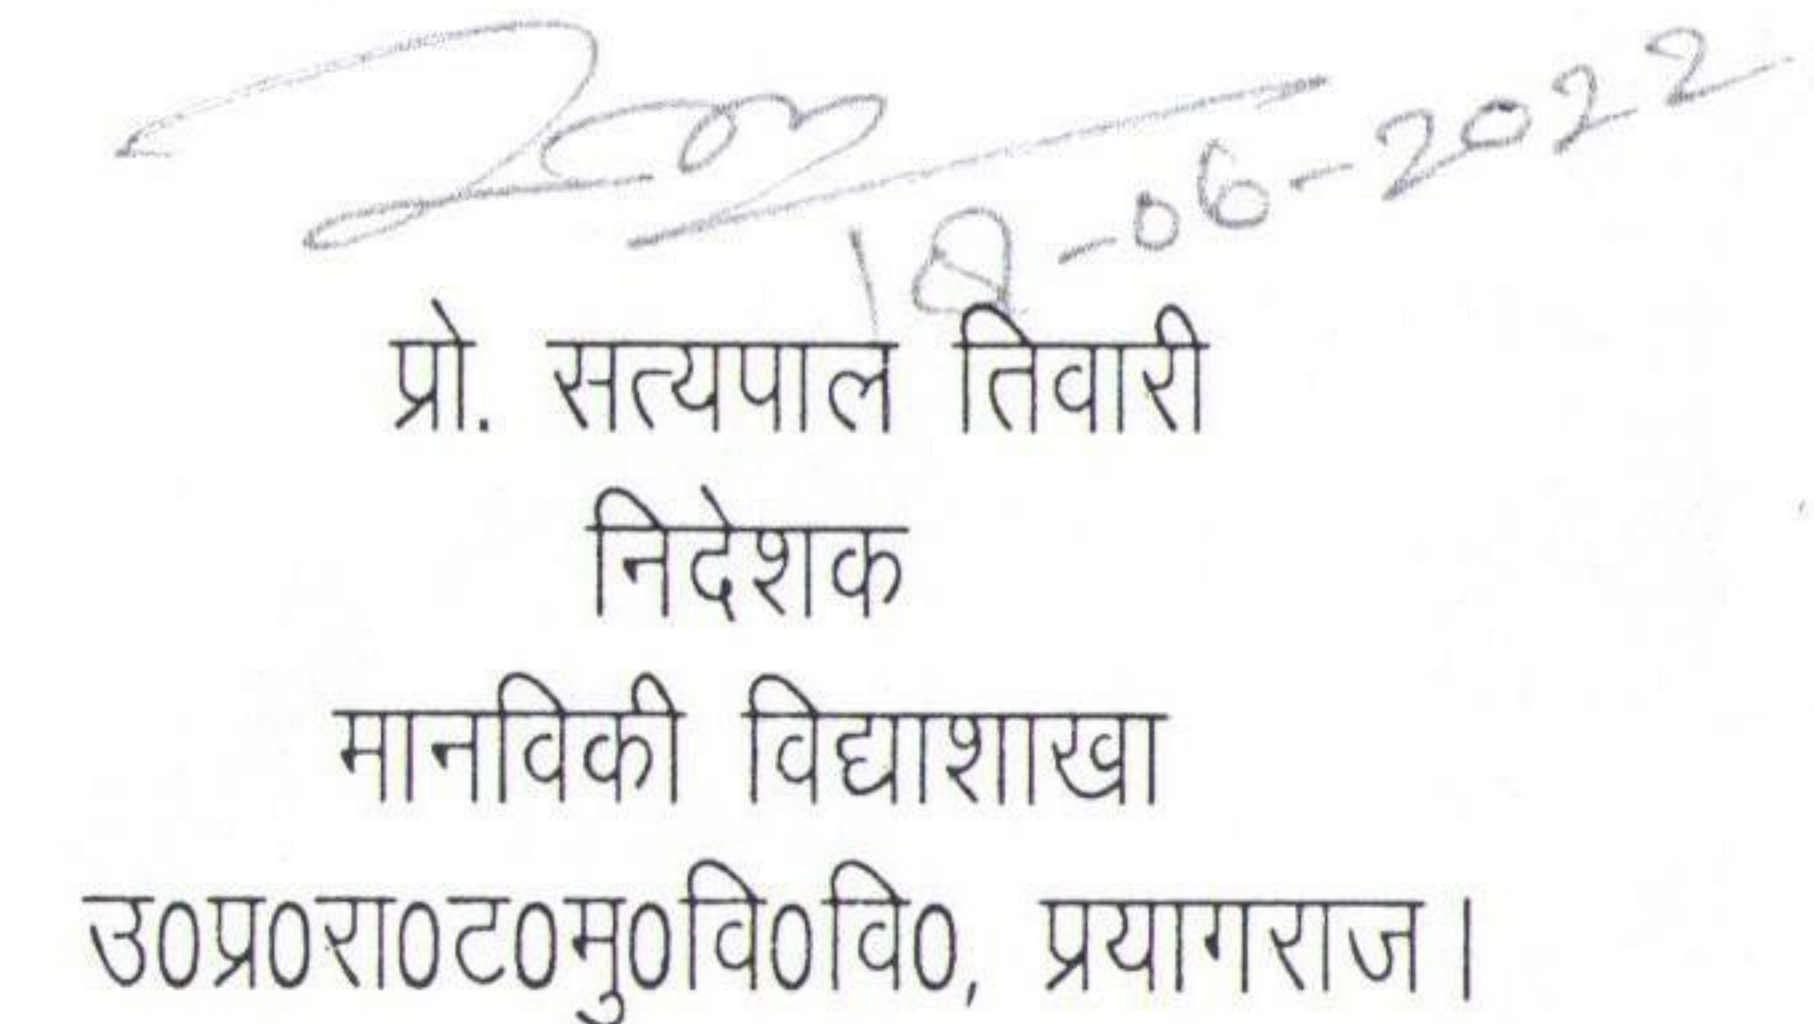 18-06-2022
प्रो. सत्यपाल तिवारी
निदेशक
मानविकी विद्याशाखा
उ0प्र0रा0ट0मु0वि0वि0, प्रयागराज।